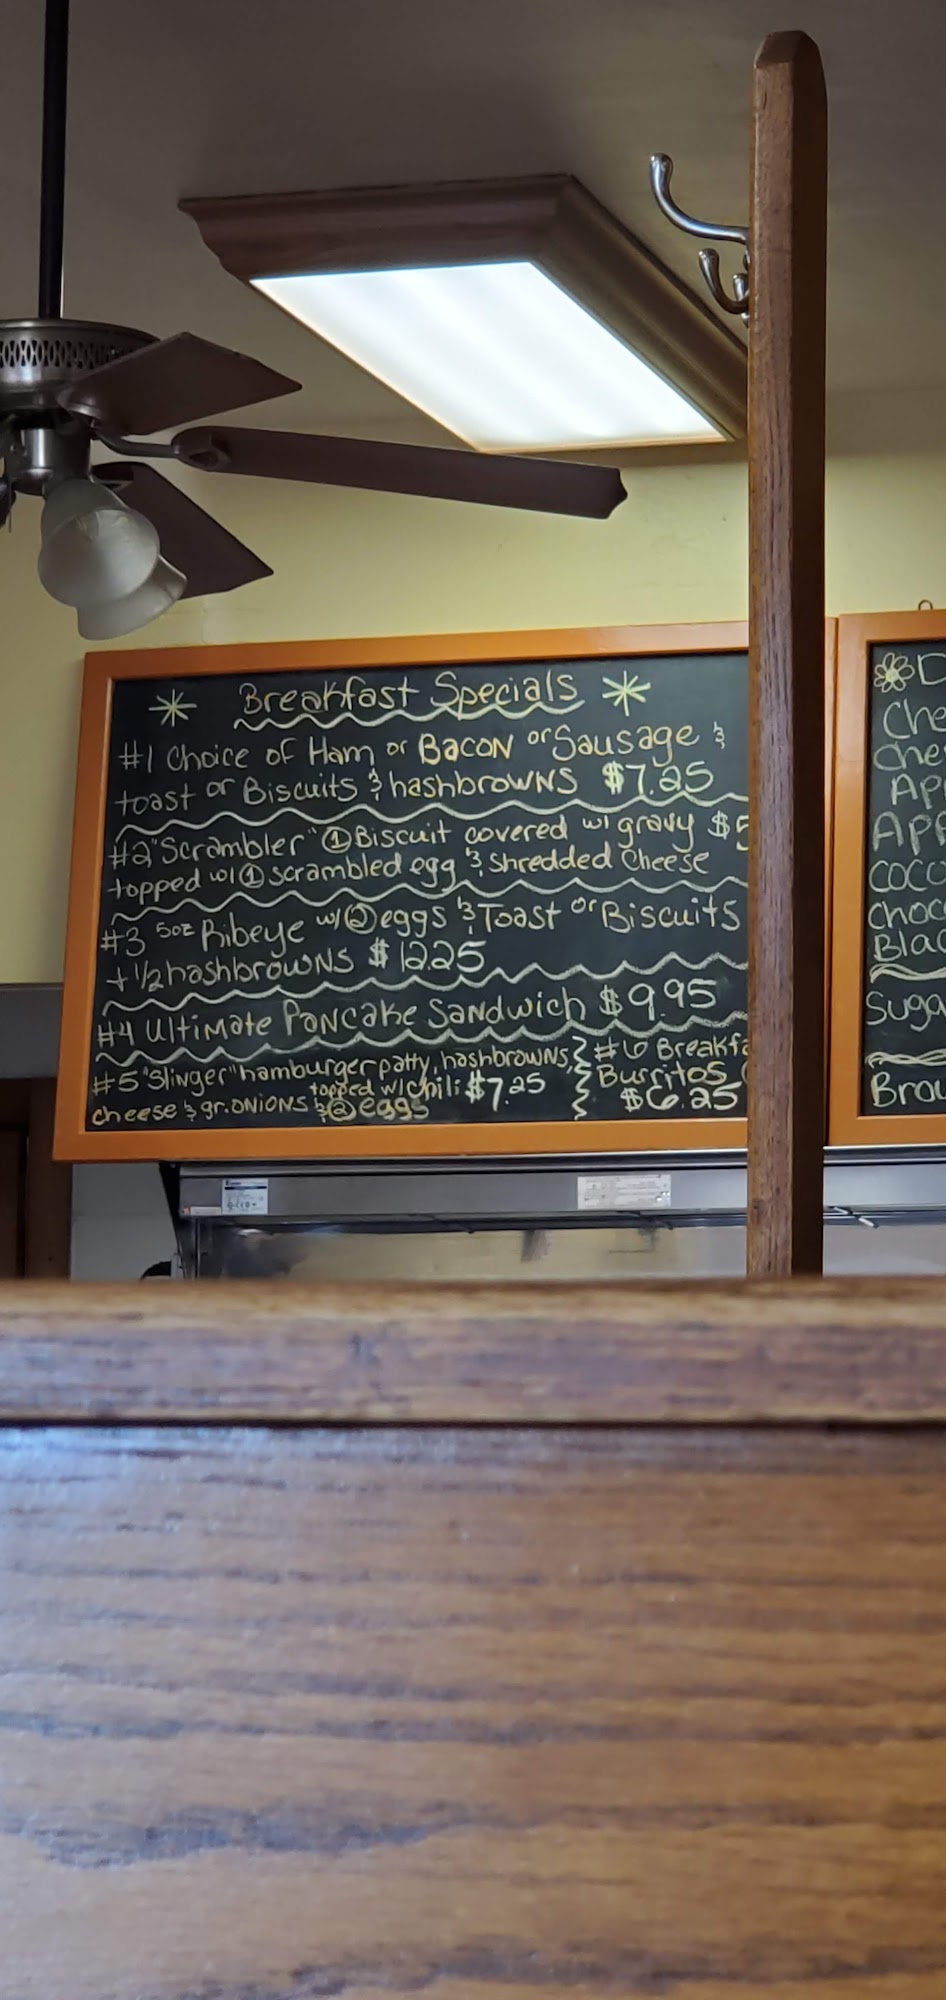 Breakfast Specials
#1 Choice of Ham or Bacon or Sausage &
toast or Biscuits & hashbrowns $7.25
#2 "Scrambler" ① Biscuit covered w/ gravy $5
topped w/ ① scrambled egg & shredded cheese
#3 5oz Ribeye w/ ② eggs & Toast or Biscuits
+ 1/2 hashbrowns $12.25
#4 Ultimate Pancake Sandwich $9.95
#5 "Slinger" hamburger patty, hashbrowns,
topped w/ chili $7.25
cheese & gr. onions & ② eggs
#6 Breakfa
Burritos
$6.25
D
Che
Che
App
App
Coco
Choc
Blac
Suga
Brow